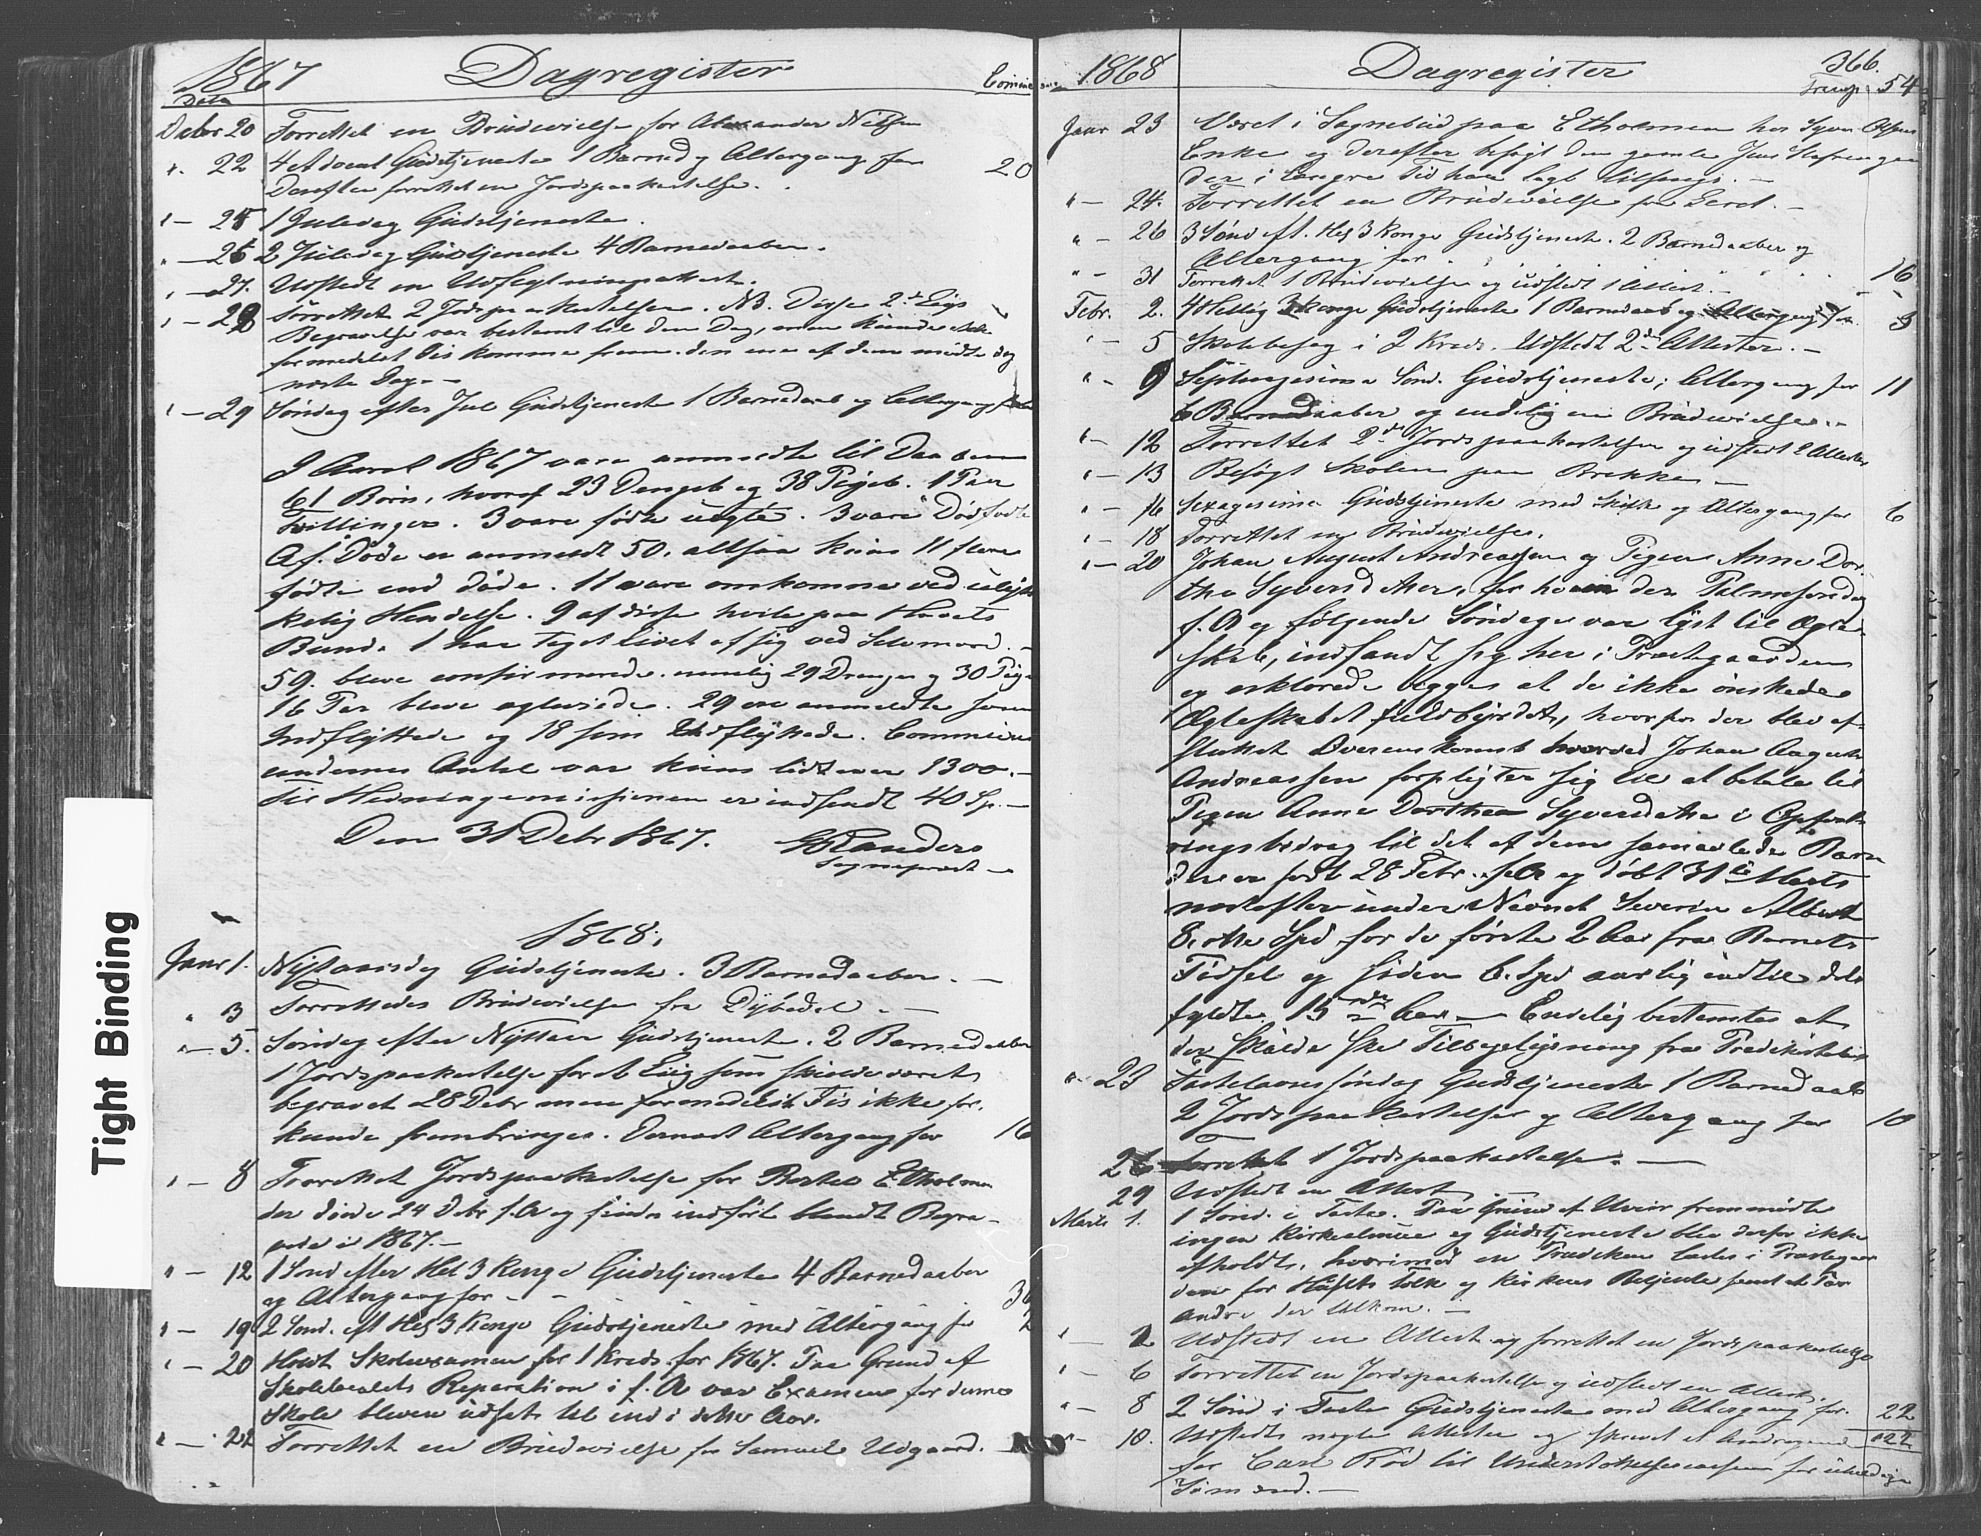 1867 Dagregister
Data
Debr 20 Forrettet en Brudevielse for Alexander Nilsen
" 22 4 Advent Gudstjeneste 1 Barned. og Altergang for 20
Derefter forrettet en Jordspaakastelse.
" — 25 1 Juledag Gudstjeneste.
" — 26 2 Juledag Gudstjeneste 4 Barnedaaber.
" — 27. Udstedt en Udflytningsattest.
" — 28 Forrettet 2 Jordspaakastelser. NB. Disse 2de Ligs
Begravelse var bestemt til den Dag, men kunde ikke
formedelst Iis komme frem. den ene af dem mødte dog
næste Dag. —
" — 29 Søndag efter Jul Gudstjeneste 1 Barnedaab og Altergang
I Aaret 1867 vare anmeldte til Daaben
61 Børn, hvoraf 23 Drengeb. og 38 Pigeb. 1 Par
Tvillinger. 3 vare fødte uægte. 3 vare Dødfødte
Af Døde er anmeldt 50, altsaa kuns 11 flere
fødte end døde. 11 vare omkomne ved ulyk-
kelig Hendelse. 9 af disse hvile paa Havets
Bund. 1 har taget Livet af sig ved Selvmord. —
59. bleve confirmerede. nemlig 29 Drenge og 30 Pige
16 Par bleve egteviede. 29 ere anmeldte som
Indflyttede og 18 som Udflyttede. Communi-
canternes Antal var kuns lidt over 1300. —
Til Hedningemissionen er indsendt 40 Sp. —
Den 31 Debr 1867.
Sogneprest
1868.
Janr 1. Nytaarsdag Gudstjeneste. 3 Barnedaaber. —
" 3 Forrettedes Brudevielse fra Dybedal. —
" — 5. Søndag efter Nyttaar Gudstjeneste. 2 Barnedaaber
1 Jordspaakastelse for et Lig som skulde været
begravet 28 Debr men formedelst Iis ikke før
kunde frembringes. Dernæst Altergang for 16
" — 8 Forrettet Jordspaakastelse for Etholmen
der døde 24 Debr f. A og findes indført blandt Begra-
vede i 1867. —
" — 12 1 Sønd efter Hel 3 Konge Gudstjeneste 4 Barnedaaber
og Altergang for - -
" — 19 2 Sønd. eft Hel 3 Konge Gudstjeneste med Altergang for
" — 20 Holdt Skoleexamen for 1 Kreds for 1867. Paa Grund af
Skolelocalets Reparation i f. A var Examen for denne
Skole bleven udsat til ind i dette Aar.
" — 22 Forrettet en Brudevielse for Samuel Udgaard. —
1868 Dagregister 366.
54
Janr 23 Været i Sognebud paa Etholmen hos Syver Olsens
Enke og derefter besøgt den gamle Jens
der i længre Tid have lagt tilsengs. —
" — 24. Forrettet en Brudevielse fra
" — 26 3 Sønd eft. Hel 3 Konge Gudstjeneste. 2 Barnedaaber og
Altergang for 16
" — 31 Forrettet 1 Brudevielse og udstedt 1 Attest. —
Febr. 2. 4 Hellig 3 Konge Gudstjeneste 1 Barnedaab og Altergang for
" — 5 Skolebesøg i 2 Kreds. Udstedt 2de Attester. —
" — 9 Septuagesima Sønd. Gudstjeneste; Altergang for 11
6 Barnedaaber og endelig en Brudevielse. —
" — 12 Forrettet 2de Jordspaakastelser og udstedt 2 Attester
" — 13 Besøgt Skolen paa Brekke —
" — 16 Sexagesima Gudstjeneste med Skrifte og Altergang for 6
" — 18 Forrettet en Brudevielse.
" — 20 Johan August Andreassen og Pigen Anne Dor-
thea Syversdatter, for hvem der Palmesøndag
f. A og følgende Søndage var lyst til Ægte-
skab, indfandt sig her i Prestegaarden
og erklærede begge at de ikke ønskede
Ægteskabet fuldbyrdet, hvorfor der blev af-
sluttet Overenskomst hvorved Johan August
Andreassen forpligter sig til at betale til
Pigen Anne Dorthea Syversdatter i Opfost-
ringsbidrag til det af dem samavlede Barn
der er født 28 Febr. f. A og døbt 31te Marts
næstefter under Navnet Severin Albert
8. otte Spd for de første 2 Aar fra Barnets
Fødsel og siden 6. Spd aarlig indtil dets
fyldte 15nde Aar — Endelig bestemtes at
der skulde ske Tilbagelysning fra Predikestolen
" 23 Fastelavnssøndag Gudstjeneste 1 Barnedaab
2 Jordspaakastelser og Altergang for 10
26 Forrettet 1 Jordspaakastelse. —
29 Udstedt en Attest
Marts 1. 1 Sønd. i Faste. Paa Grund af Uveir fremmødte
ingen Kirkealmue og Gudstjeneste blev derfor ikke
afholdt, hvorimod en Prædiken læstes i Prestegaar
den for Husets Folk og Kirkens Betjente samt et Par
andre der tilkom. —
" — 2 Udstedt en Attest og forrettet en Jordspaakastelse
" — 6 Forrettet en Jordspaakastelse og udstedt en Attest.
" — 8 2 Sønd i Faste Gudstjeneste med Altergang for 22
" — 10. Udstedt nogle Attester og skrevet et Andragende 122
for Carl Rød til Understøttelsescassen for
Sømænd. —
Tight Binding